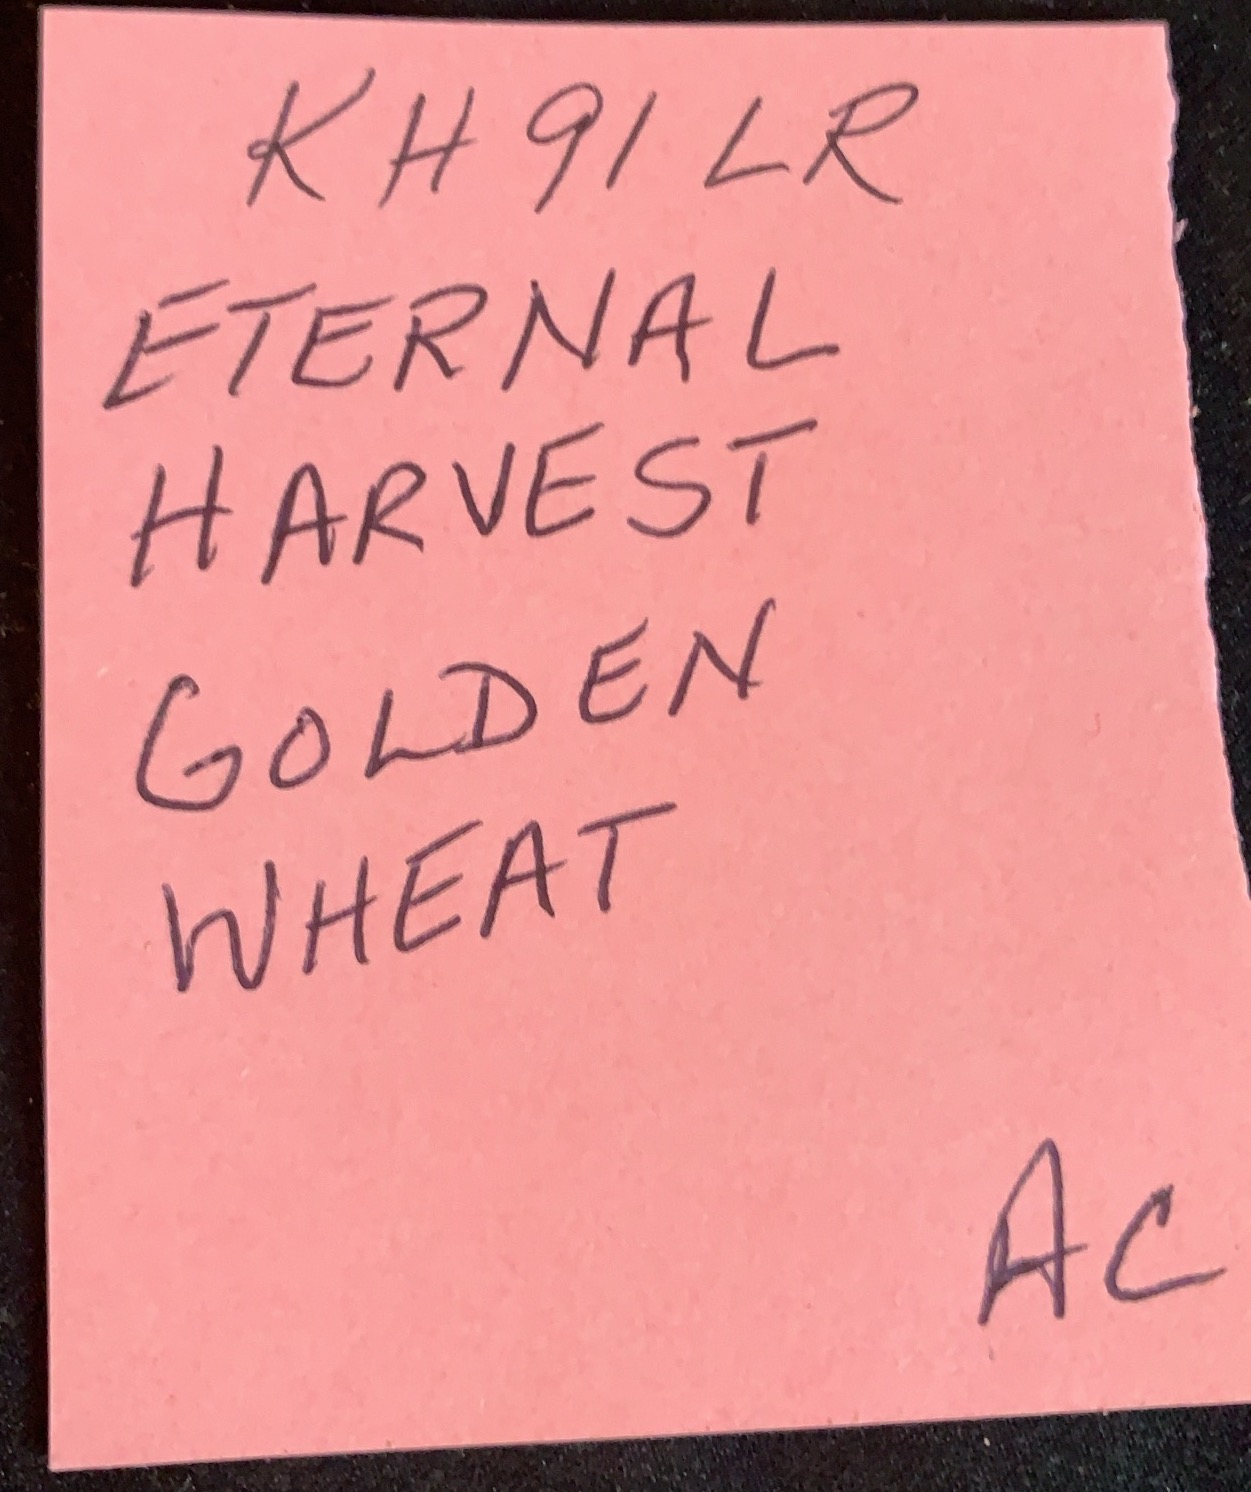 KH91LR
ETERNAL
HARVEST
GOLDEN
WHEAT
AC